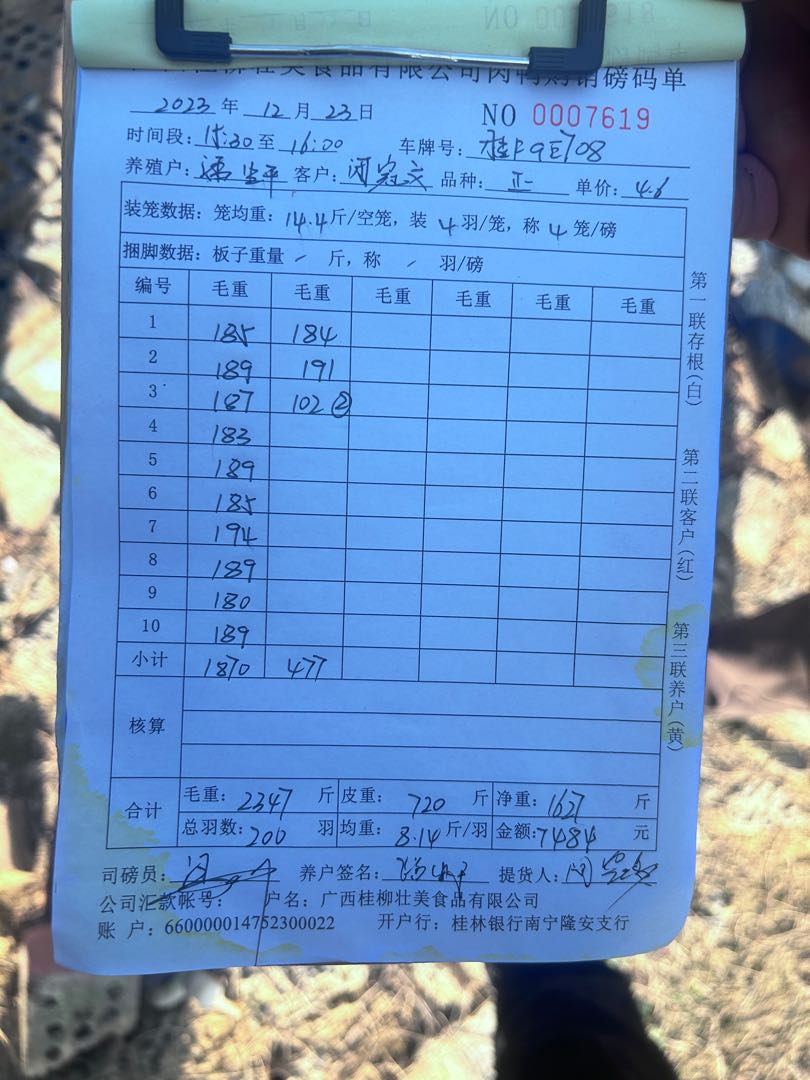 壮美食品有限公司肉鸭购销磅码单
2023年 12月 23日 NO 0007619
时间段: 15:30至 16:00 车牌号: 桂F9E708
养殖户: 客户: 闭 品种: 正一 单价: 4.6
装笼数据: 笼均重: 14.4斤/空笼, 装 4 羽/笼, 称 4 笼/磅
捆脚数据: 板子重量 / 斤, 称 / 羽/磅
编号 毛重 毛重 毛重 毛重 毛重 毛重
1 185 184
2 189 191
3 187 102 ②
4 183
5 189
6 185
7 194
8 189
9 180
10 189
小计 1870 477
核算
合计 毛重: 2347 斤 皮重: 720 斤 净重: 1627 斤
总羽数: 200 羽 均重: 8.14斤/羽 金额: 7484 元
司磅员: 养户签名: 提货人: 闭
公司汇款帐号: 户名: 广西桂柳壮美食品有限公司
账 户: 660000014752300022 开户行: 桂林银行南宁隆安支行
第一联存根(白)
第二联客户(红)
第三联养户(黄)